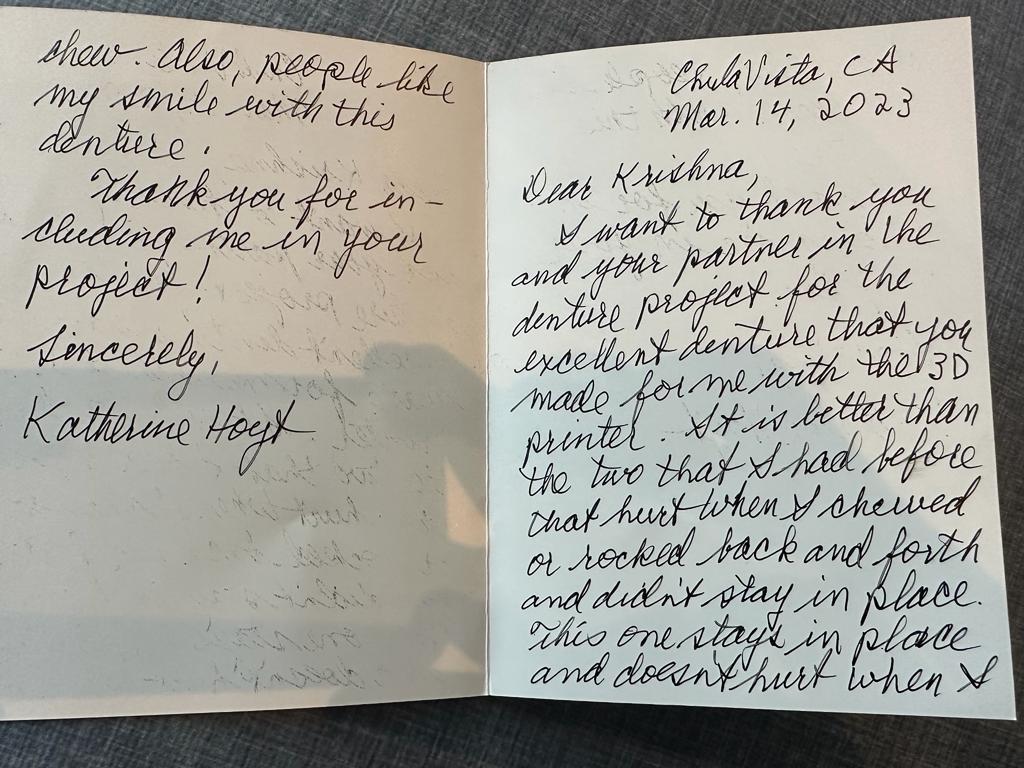 Chula Vista, CA
Mar. 14, 2023
Dear Krishna,
I want to thank you
and your partner in the
denture project for the
excellent denture that you
made for me with the 3D
printer. It is better than
the two that I had before
that hurt when I chewed
or rocked back and forth
and didn't stay in place.
This one stays in place
and doesn't hurt when I
chew. Also, people like
my smile with this
denture.
Thank you for in-
cluding me in your
project!
Sincerely,
Katherine Hoyt